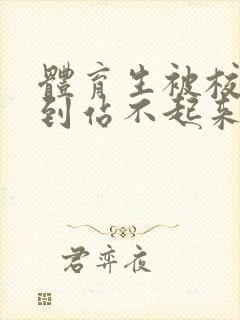 體育生被校
到佔不起來
君弈夜